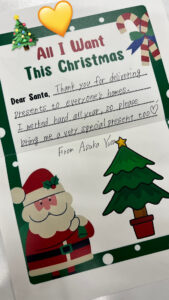 All I Want
This Christmas
Dear Santa, Thank you for delivering
presents to everyone's homes.
I worked hard all year, so, please
bring me a very special present too♡
From Asuka